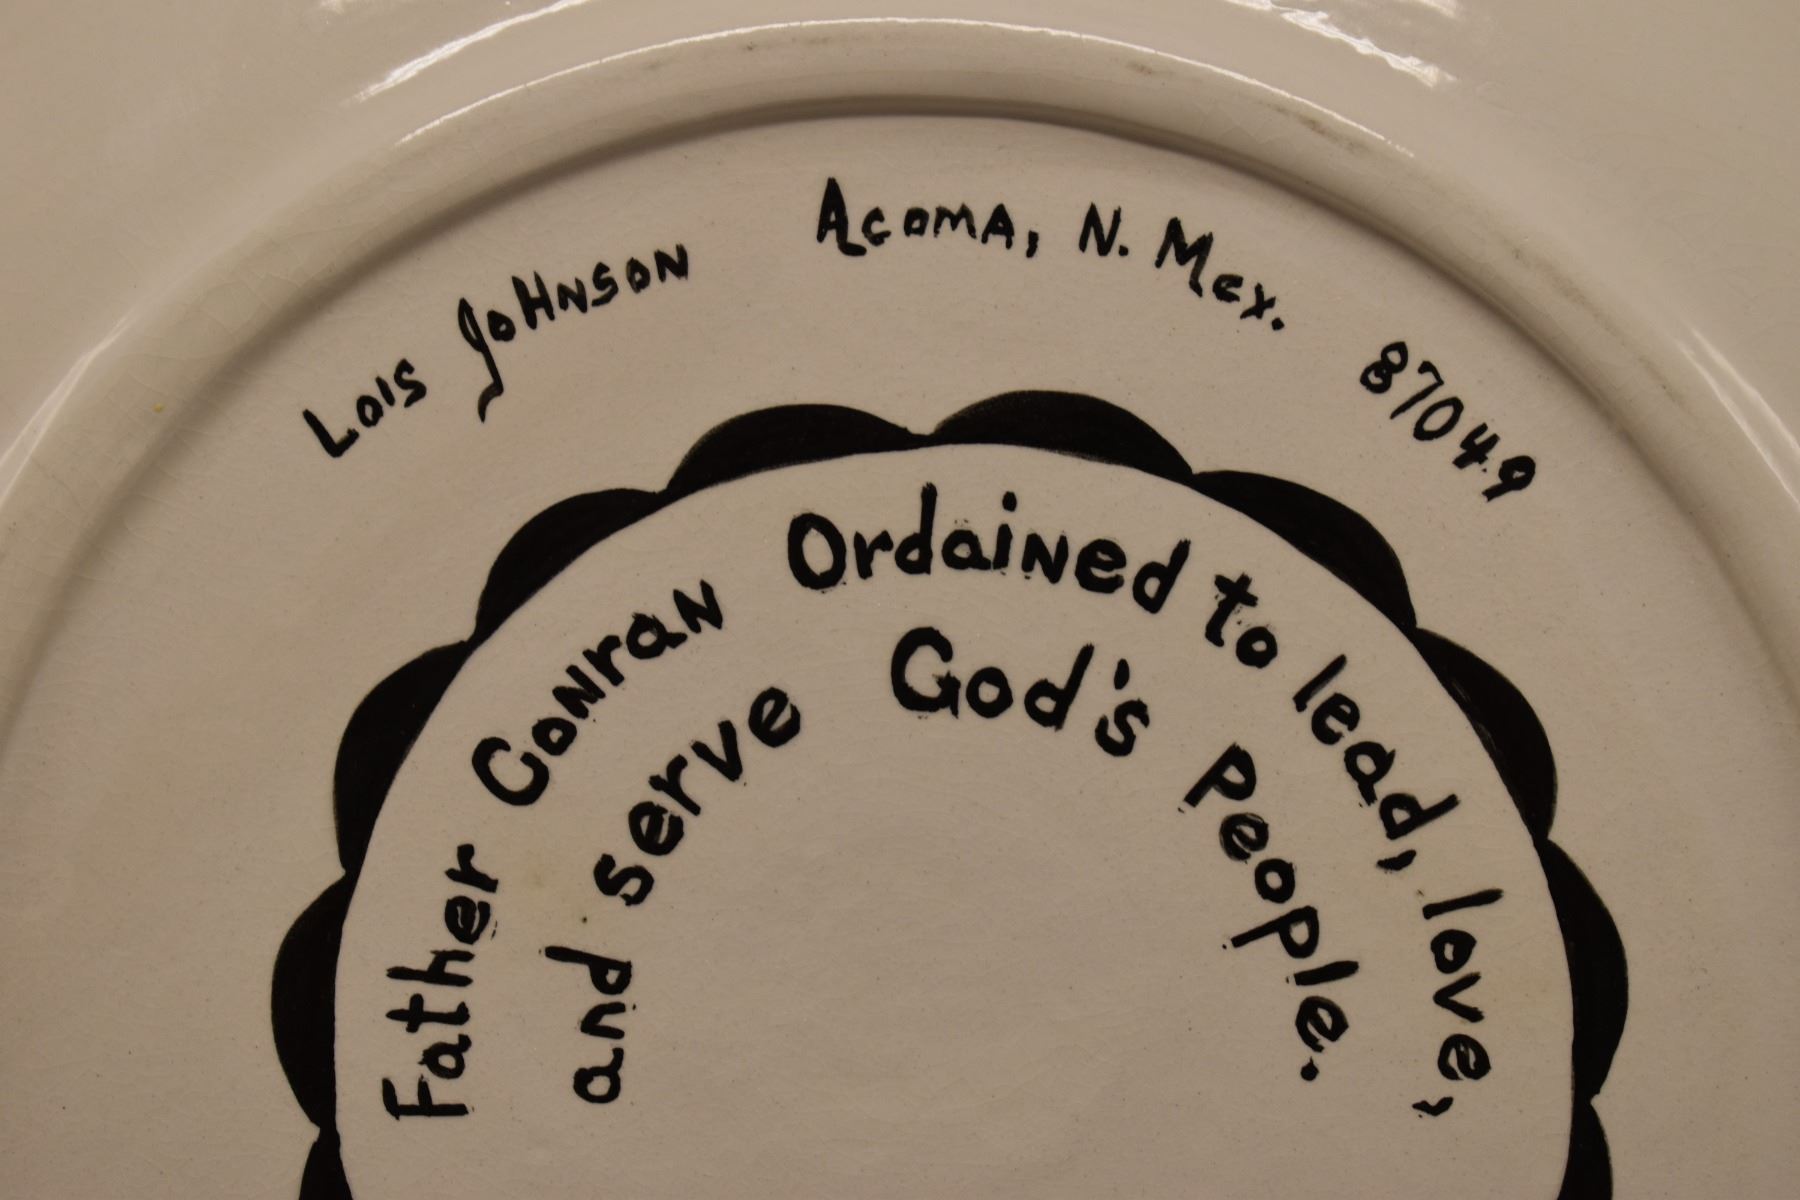 Lois Johnson Acoma, N. Mex. 87049
Father Conran Ordained to lead, love,
and serve God's People.